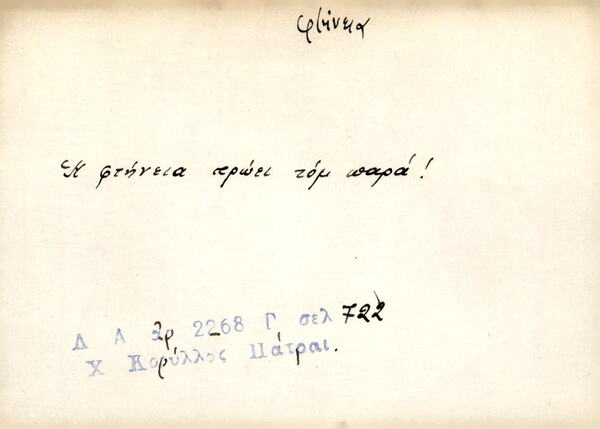 φτήνεια
Ἡ φτήνεια τρώει τόμ παρά!
Δ Α ἀρ 2268 Γ σελ 722
Χ Κορύλλος Πάτραι.